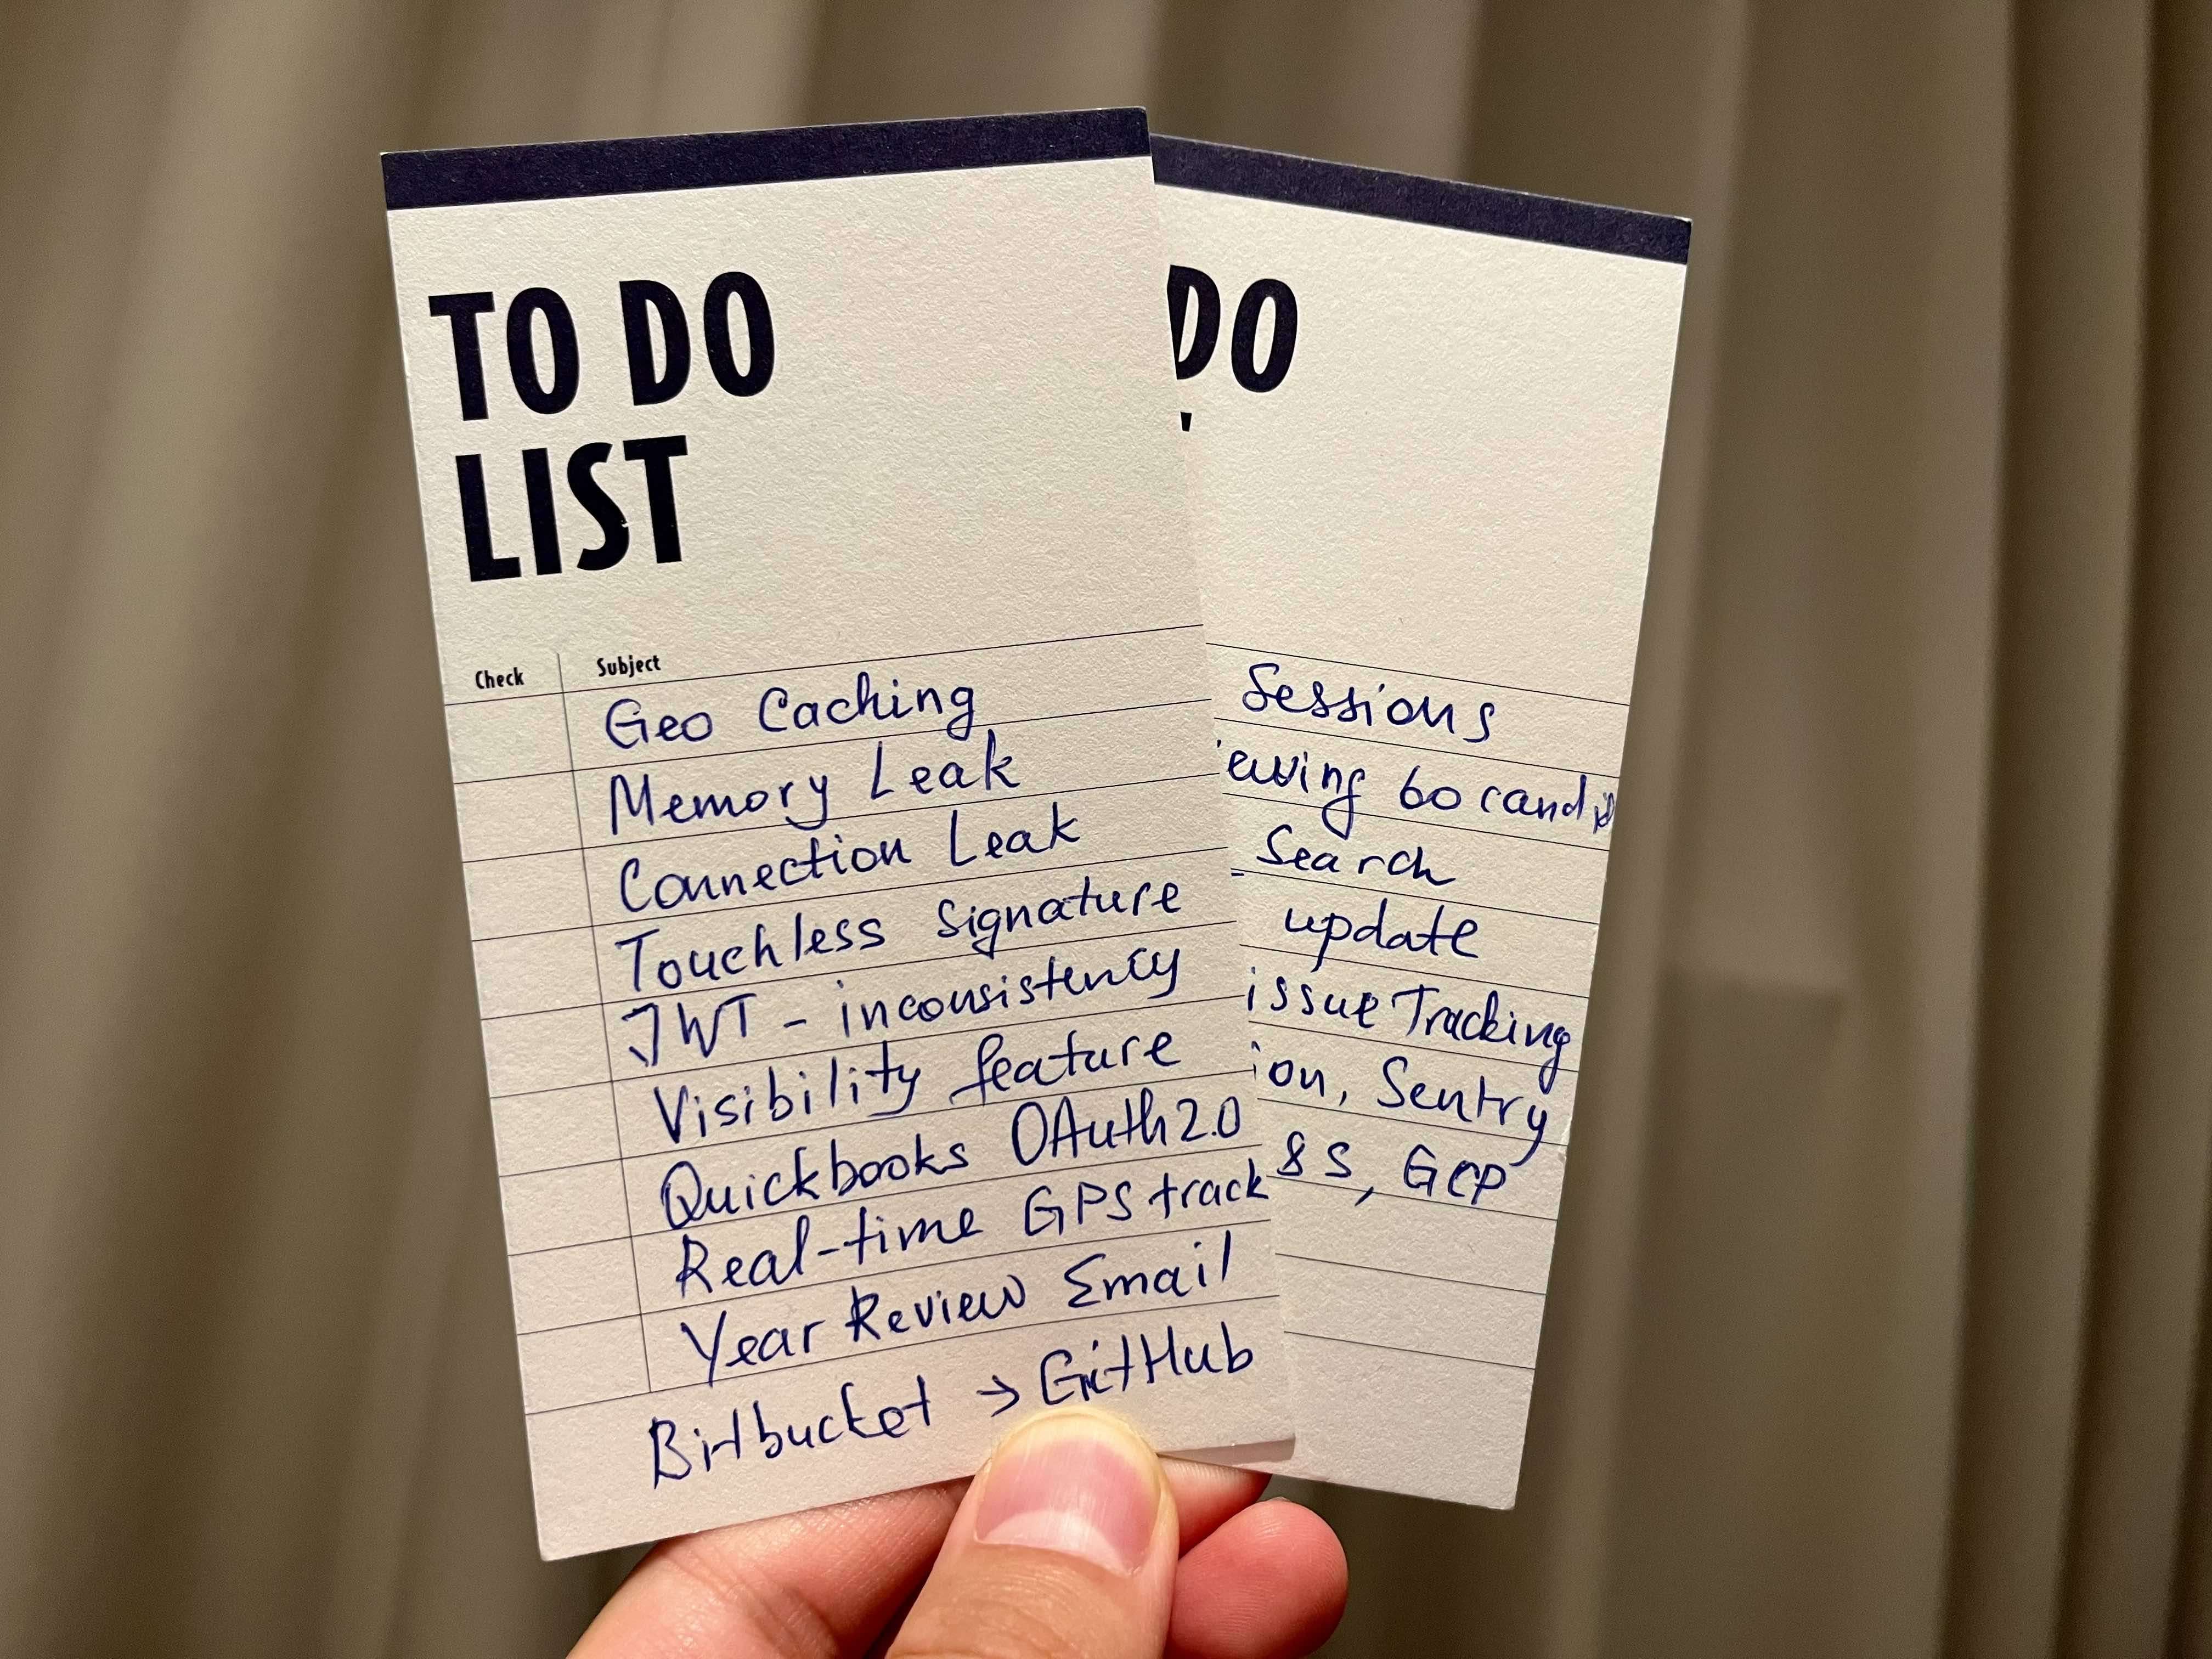 TO DO
LIST
Check Subject
Geo Caching
Memory Leak
Connection Leak
Touchless Signature
JWT - inconsistency
Visibility feature
Quickbooks OAuth2.0
Real-time GPS track
Year Review Email
Bitbucket → GitHub
DO
Sessions
ewing 60 candid
Search
update
issue Tracking
ion, Sentry
8S, GCP